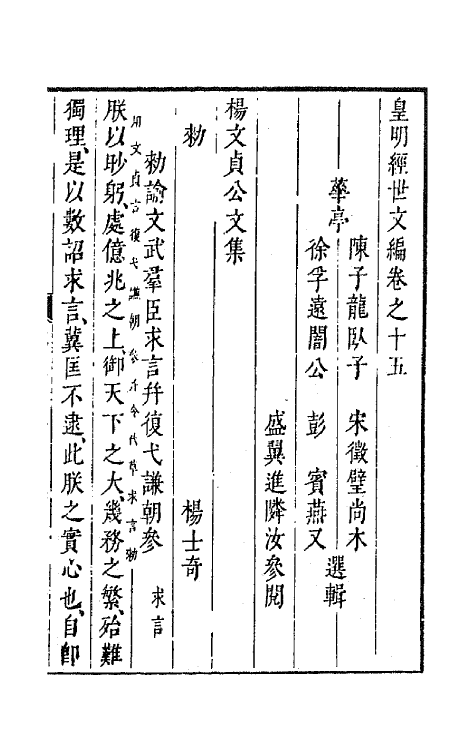 皇明經世文編卷之十五
華亭
陳子龍臥子
宋徵璧尚木
徐孚遠闇公
彭賓燕又
選輯
盛翼進隣汝參閱
楊文貞公文集
楊士奇
勑
勑諭文武羣臣求言幷復弋謙朝參
求言
用文貞言復弋謙朝參并令代草求言勑
朕以眇躬、處億兆之上、御天下之大、幾務之繁、殆難
獨理、是以數詔求言、冀匡不逮、此朕之實心也、自卽